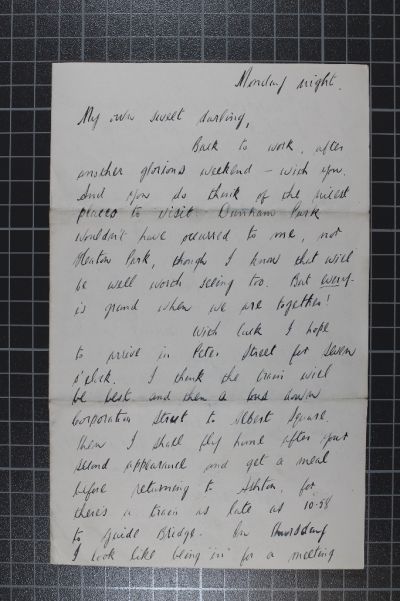 Monday night.
My own sweet darling,
Back to work, after
another glorious weekend – with you.
And you do think of the nicest
places to visit. Dunham Park
wouldn't have occurred to me, nor
Heaton Park, though I know that will
be well worth seeing too. But every-
is grand when we are together!
With luck I hope
to arrive in Peter Street for seven
o'clock. I think the train will
be best and then a bus down
Corporation Street to Albert Square.
Then I shall fly home after your
second appearance and get a meal
before returning to Ashton, for
there's a train as late as 10.58
to Guide Bridge. On Thursday
I look like being "in" for a meeting